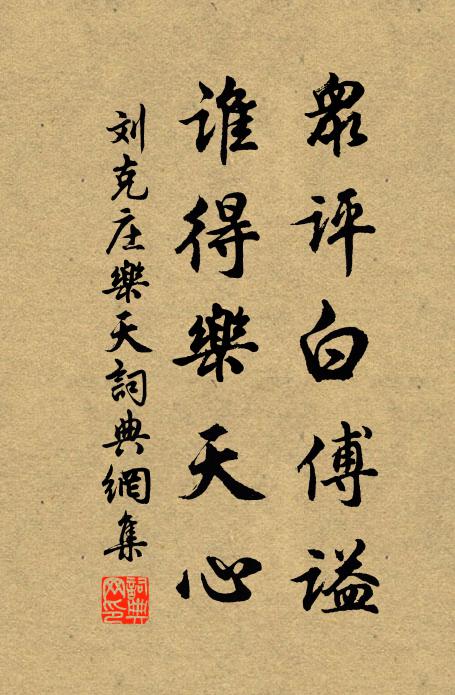 衆评白傅谥
谁得樂天心
刘克庄樂天詞典網集
詞典网印